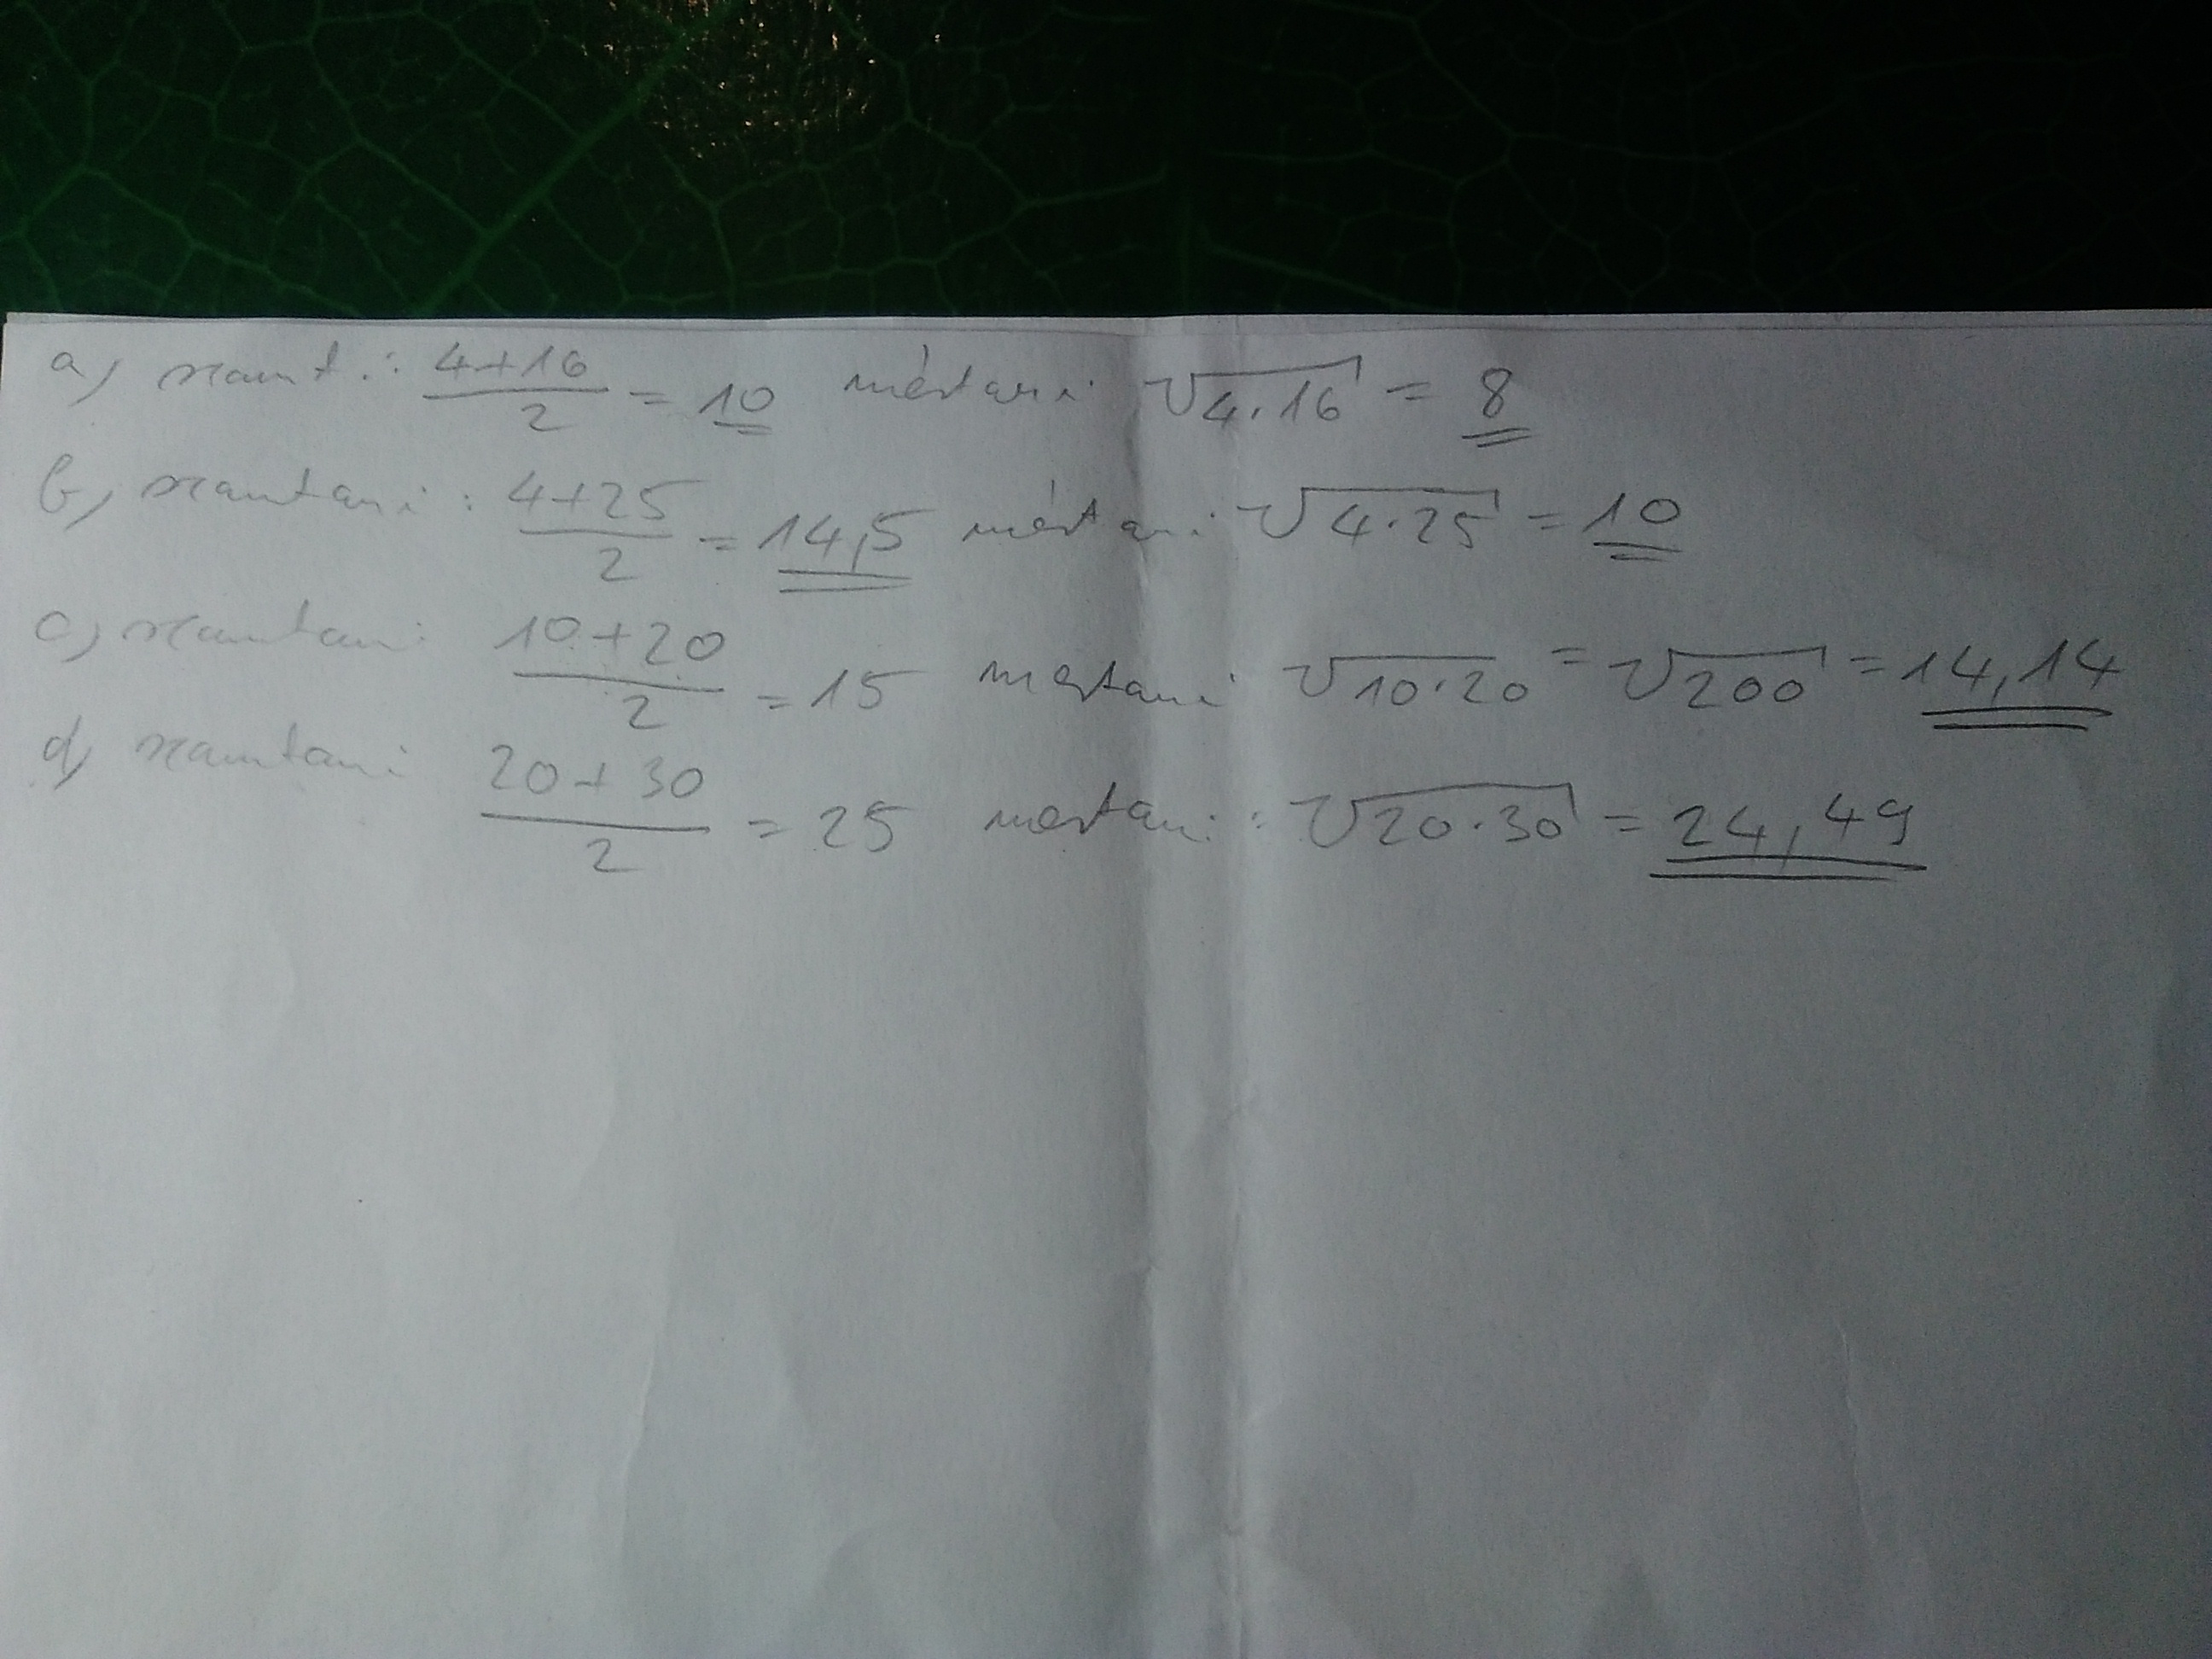 a, szamt.: 4+16/2 = 10 mértani: √4·16 = 8
b, szamtani: 4+25/2 = 14,5 mértani: √4·25 = 10
c, szamtani: 10+20/2 = 15 mertani: √10·20 = √200 = 14,14
d, szamtani: 20+30/2 = 25 mertani: √20·30 = 24,49